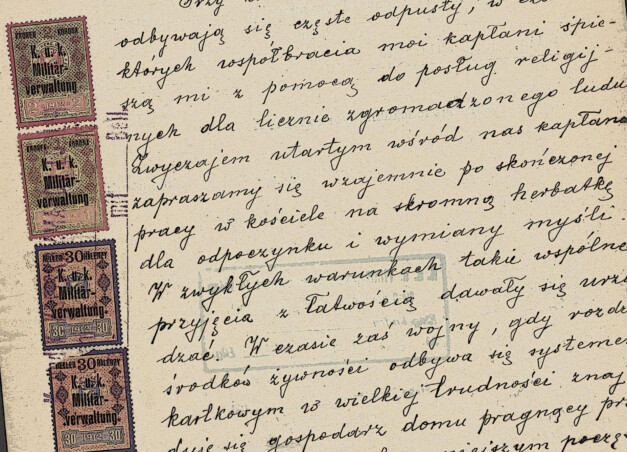 odbywają się częste odpusty, w
których współbracia moi kapłani spie-
szą mi z pomocą do posług religij-
nych dla licznie zgromadzonego ludu
Zwyczajem utartym wśród nas kapłanów
zapraszamy się wzajemnie po skończonej
pracy w kościele na skromną herbatkę
dla odpoczynku i wymiany myśli.
W zwykłych warunkach takie wspólne
przyjęcia z łatwością dawały się urzą
dzać. W czasie zaś wojny, gdy rozdz
środków żywności odbywa się systemem
kartkowym w wielkiej trudności znaj
duje się gospodarz domu pragnący
K. u. k.
Militär-
verwaltung
K. u. k.
Militär-
verwaltung
HELLER 30 HALERZY
K. u. k.
Militär-
verwaltung.
30 1912 30
HELLER 30 HALERZY
K. u. k.
Militär-
verwaltung.
30 1912 30